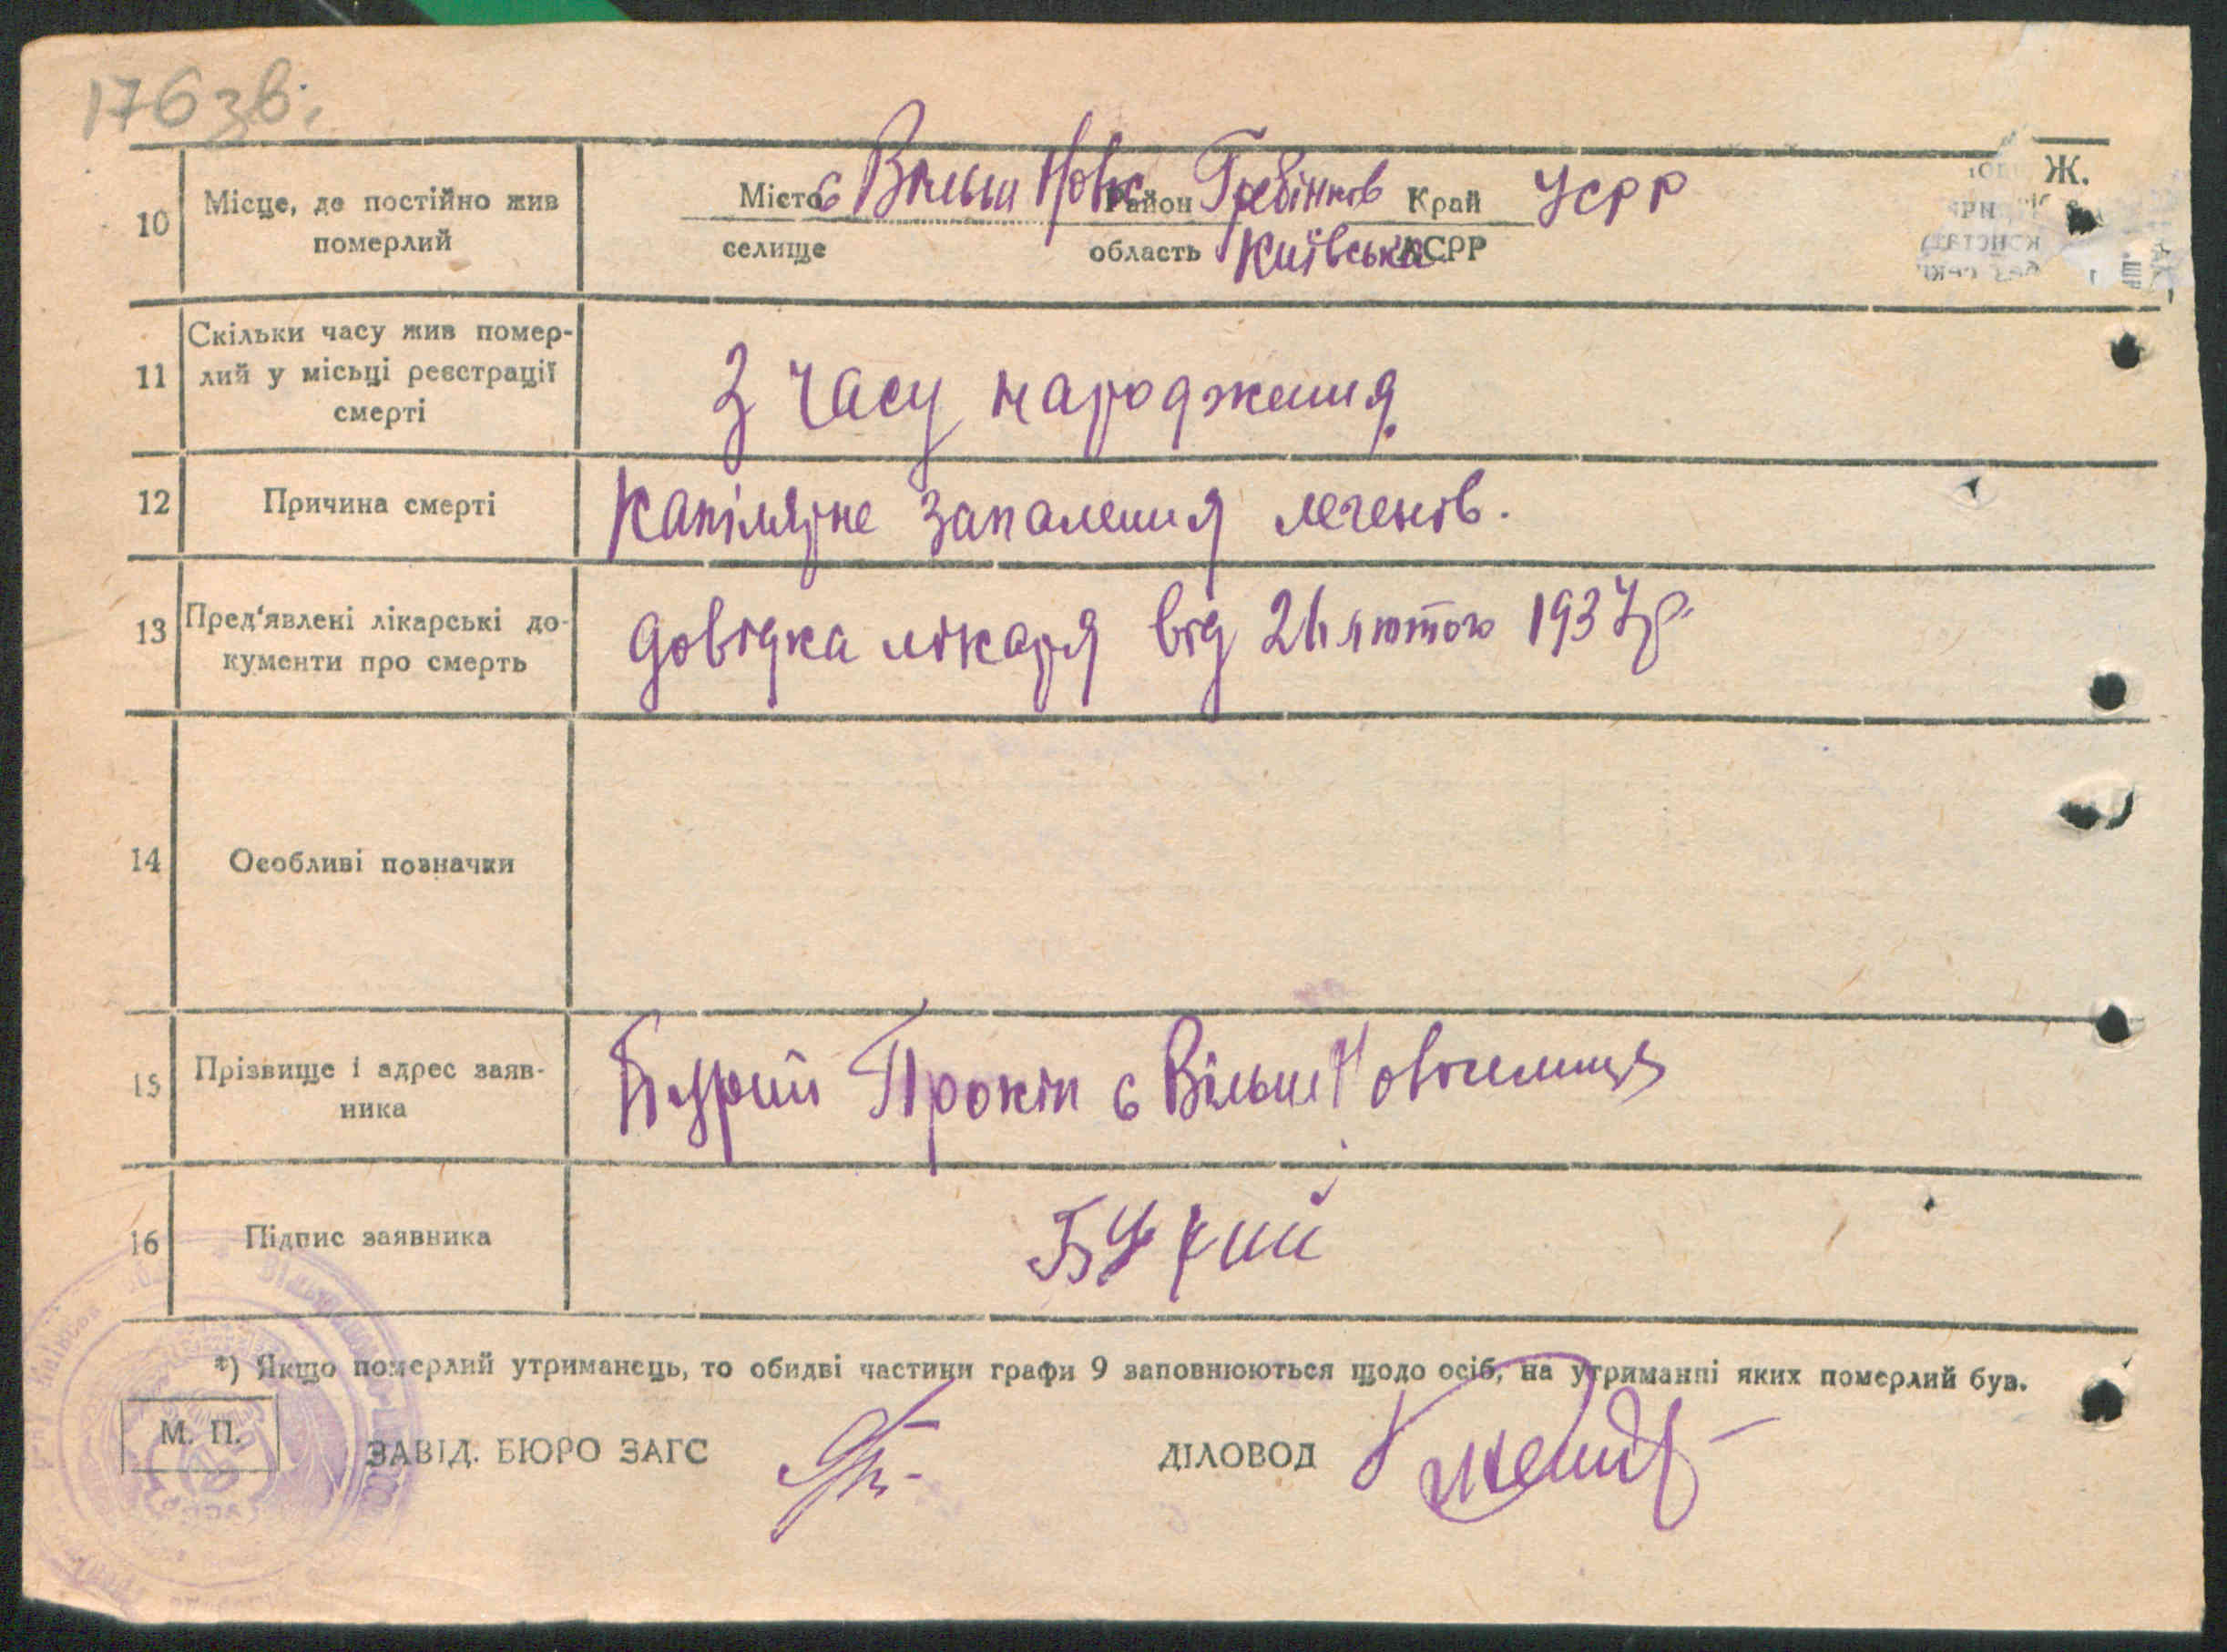 176 зв.
10 Місце, де постійно жив померлий
Місто с Вільш Новс Район Гребінков Край УСРР
селище область Київська АСРР
Ж.
11 Скільки часу жив помер-
лий у місьці реєстрації
смерті
З часу народження
12 Причина смерті
Капілярне запалення легенів.
13 Пред'явлені лікарські до-
кументи про смерть
довідка лікаря від 21 лютого 1937 р.
14 Особливі позначки
15 Прізвище і адрес заяв-
ника
Бурий Прокіп с Вільш Новоселиця
16 Підпис заявника
Бурий
*) Якщо померлий утриманець, то обидві частини графи 9 заповнюються щодо осіб, на утриманні яких померлий був.
М. П.
ЗАВІД. БЮРО ЗАГС
ДІЛОВОД